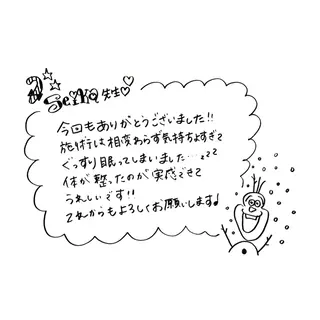 Seiko先生♡
今回もありがとうございました!!
施術は相変わらず気持ちよすぎて
ぐっすり眠ってしまいました…zzz
体が整ったのが実感できて
うれしいです!!
これからもよろしくお願いします♪